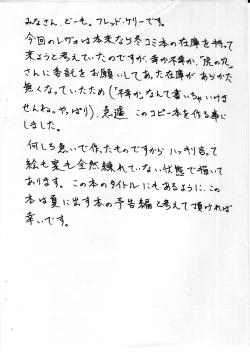 みなさん、どーも。フレッド・ケリーです。
今回のレヴォは本来なら冬コミ本の在庫を持って
来ようと考えていたのですが、幸か不幸か、虎の穴
さんに委託をお願いしてあった在庫があらかた
無くなっていたため(「不幸か」なんて書いちゃいけま
せんね。やっぱり)、急遽 このコピー本を作る事に
しました。
何しろ急いで作ったものですから、ハッキリ言って
絵も実も全然練れていない状態で描いて
あります。この本のタイトルにもあるように、この
本は夏に出す本の予告編と考えて頂ければ
幸いです。